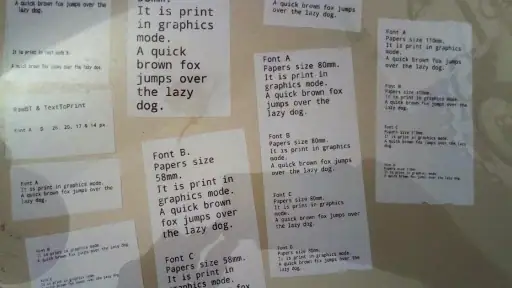 A quick brown fox jumps over the
lazy dog.
It is print in text mode B.
A quick brown fox jumps over the lazy dog.
RawBT & TextToPrint
Font A
It is print in graphics mode.
A quick brown fox jumps over the
lazy dog.
Font B
It is print in graphics mode.
A quick brown fox jumps over the lazy dog.
It is print
in graphics
mode.
A quick
brown fox
jumps over
the lazy
dog.
Font B.
Papers size
58mm.
It is print in
graphics mode.
A quick brown
fox jumps over
the lazy dog.
Font C
Papers size 58mm.
It is print in
graphics mode.
A quick brown fox
jumps over the
lazy dog.
Font A
Papers size 80mm.
It is print in
graphics mode.
A quick brown fox
jumps over the
lazy dog.
Font B
Papers size 80mm.
It is print in
graphics mode.
A quick brown fox jumps
over the lazy dog.
Font C
Papers size 80mm.
It is print in graphics
mode.
A quick brown fox jumps over
the lazy dog.
Font D
It is print in graphics mode.
A quick brown fox jumps over the
lazy dog.
Font A
Papers size 110mm.
It is print in graphics
mode.
A quick brown fox jumps
over the lazy dog.
Font B
Papers size 110mm.
It is print in graphics mode.
A quick brown fox jumps over the
lazy dog.
Font C
It is print in graphics mode.
A quick brown fox jumps over the lazy dog.